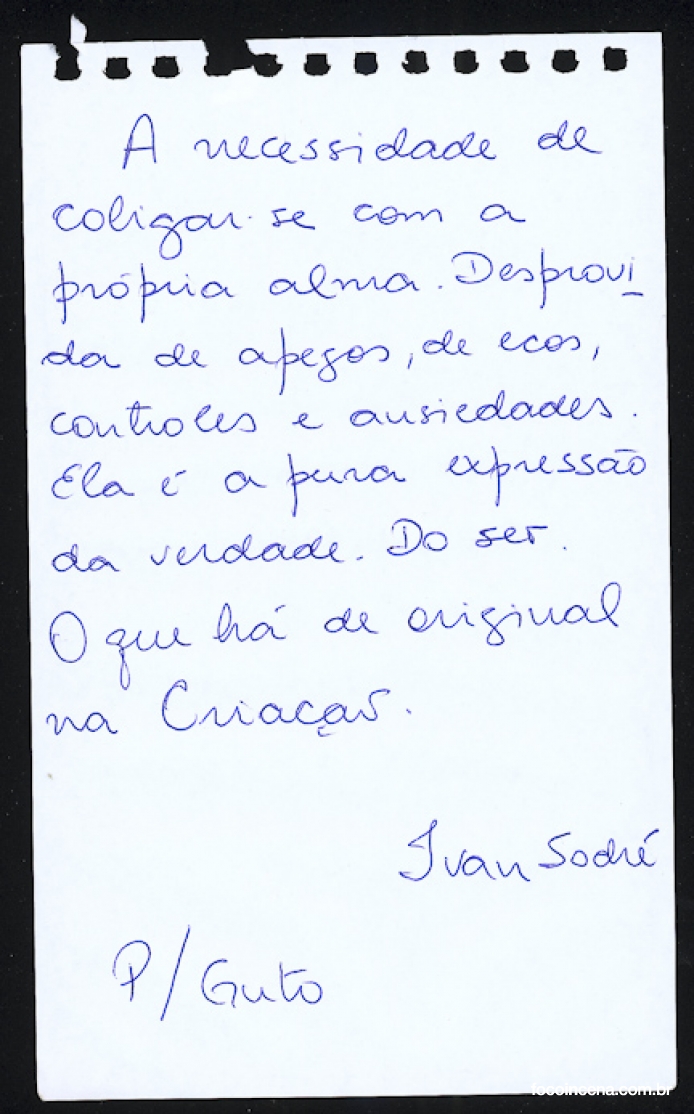 A necessidade de
coligar-se com a
própria alma. Desprovi
da de apegos, de ecos,
controles e ansiedades.
Ela é a pura expressão
da verdade. Do ser.
O que há de original
na Criação.
Ivan Sodré
P/ Guto
focoincena.com.br